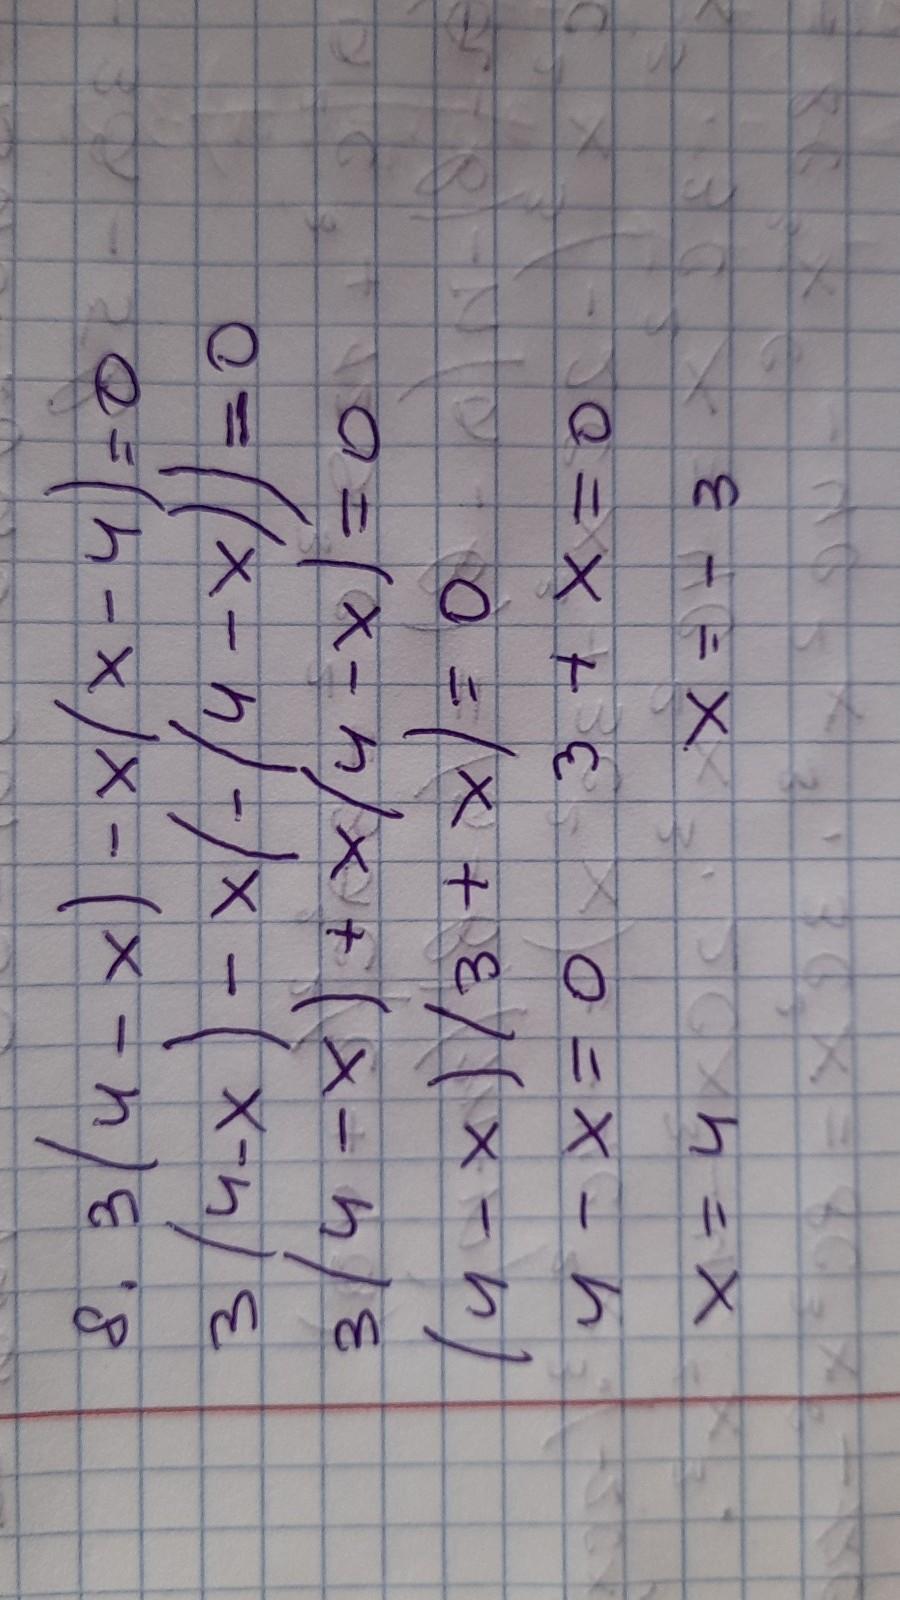 8. 3(4 - x) - x(x - 4) = 0
3(4 - x) - x(-(4 - x)) = 0
3(4 - x) + x(4 - x) = 0
(4 - x)(3 + x) = 0
4 - x = 0 3 + x = 0
x = 4 x = - 3